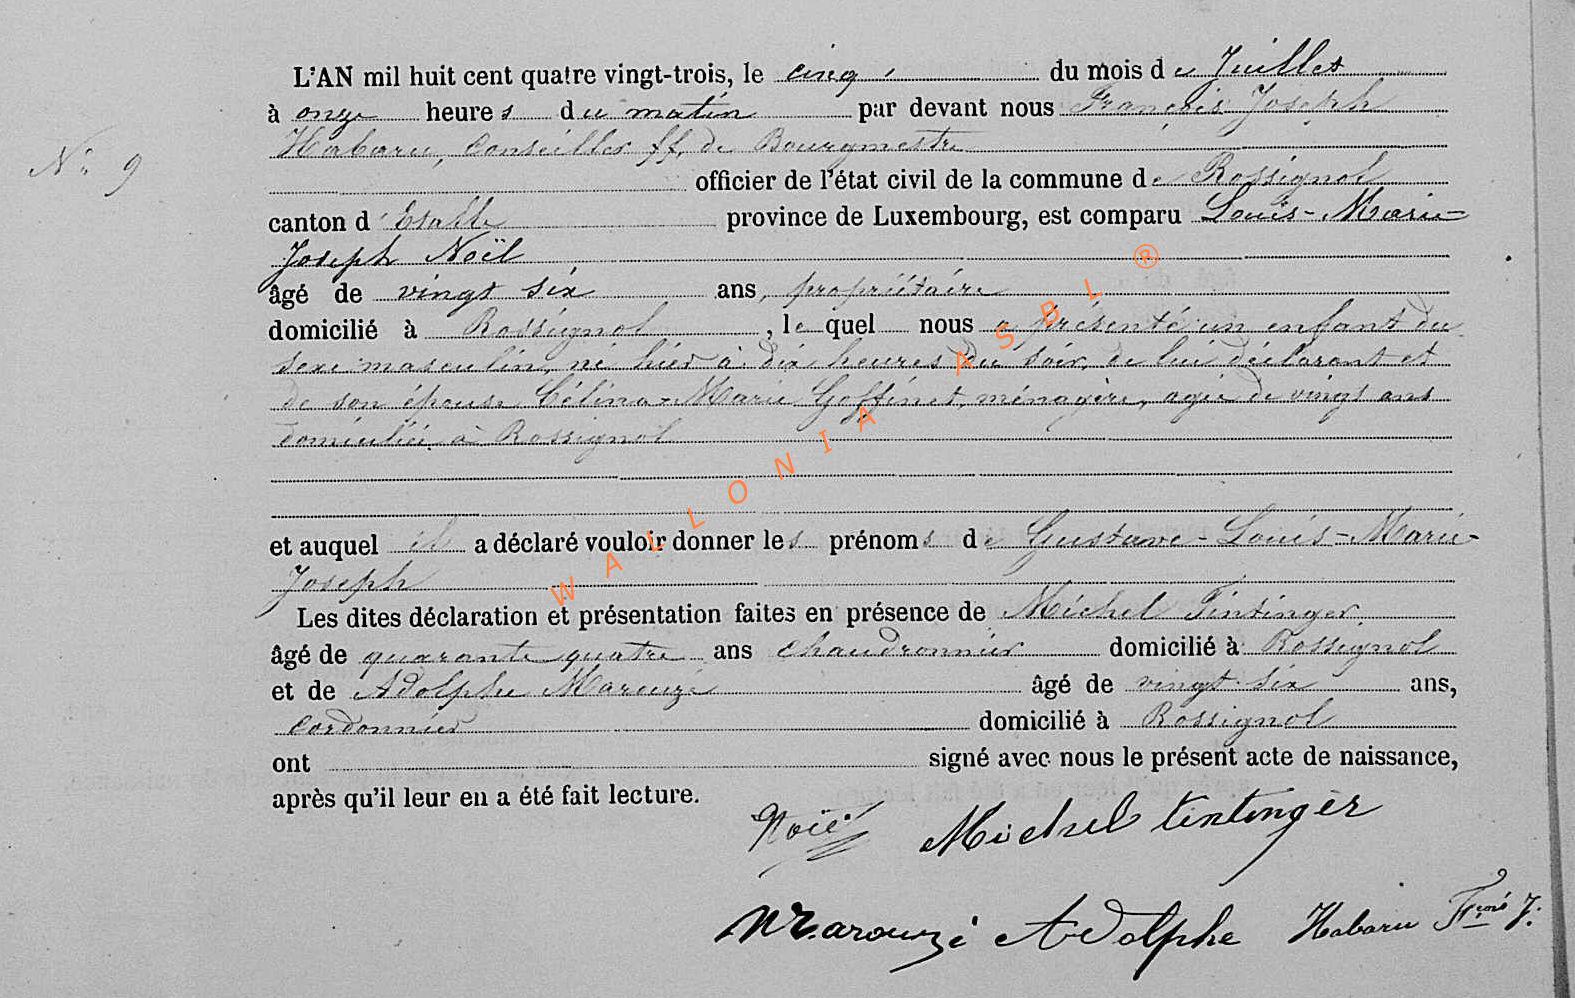 L'AN mil huit cent quatre vingt-trois, le cinq du mois de Juillet
à onze heures du matin par devant nous François Joseph
Habaru, Conseiller ff. de Bourgmestre
N° 9
officier de l'état civil de la commune de Rossignol
canton d'Etalle province de Luxembourg, est comparu Louis-Marie-
Joseph Noël
âgé de vingt six ans, propriétaire
domicilié à Rossignol, lequel nous a présenté un enfant du
sexe masculin, né hier à dix heures du soir, de lui déclarant et
de son épouse Célina-Marie Goffinet, ménagère, agée de vingt ans
domiciliée à Rossignol
et auquel il a déclaré vouloir donner les prénoms de Gustave-Louis-Marie-
Joseph
Les dites déclaration et présentation faites en présence de Michel Tintinger
âgé de quarante quatre ans chaudronnier domicilié à Rossignol
et de Adolphe Marouzé âgé de vingt six ans,
cordonnier domicilié à Rossignol
ont signé avec nous le présent acte de naissance,
après qu'il leur en a été fait lecture.
Noël Michel tintinger
Marouzé Adolphe Habaru Fçois J.
WALLONIA ASBL ®